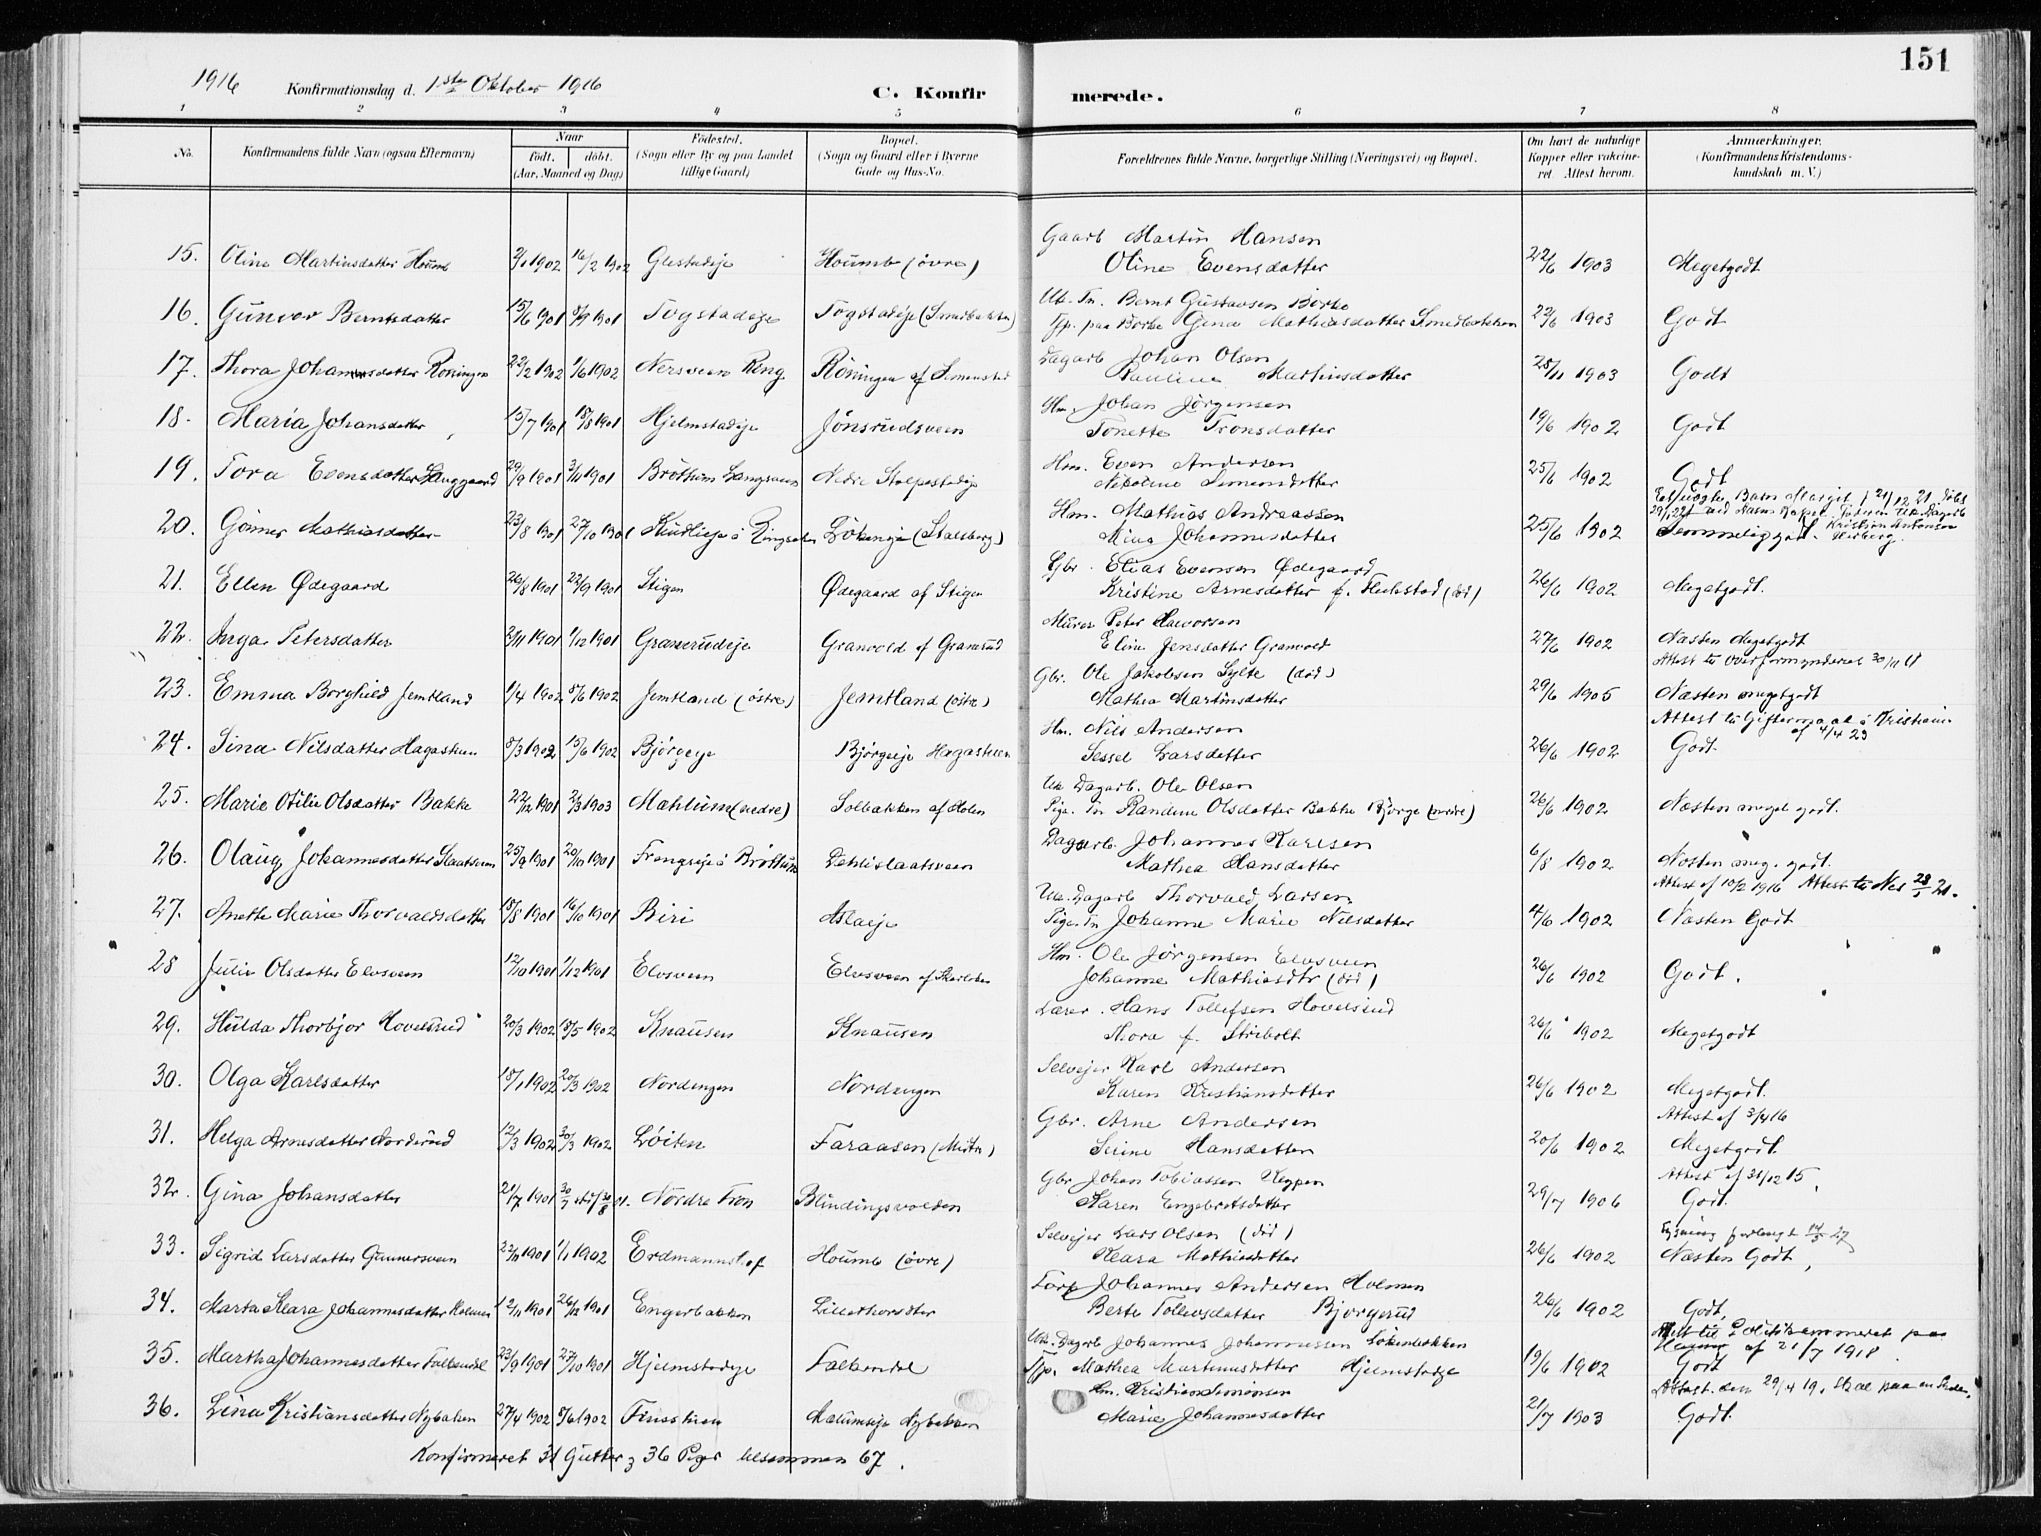 151
1916 Konfirmationsdag d. 1ste Oktober 1916 C. Konfirmerede.
1 2 3 4 5 6 7 8
No. Konfirmandens fulde Navn (ogsaa Efternavn) Naar født. døbt. (Aar, Maaned og Dag) Fødested. (Sogn eller By og paa Landet tillige Gaard) Bopæl. (Sogn og Gaard eller i Byerne Gade og Hus-No. Forældrenes fulde Navne, borgerlige Stilling (Næringsvei) og Bopæl. Om havt de naturlige Kopper eller vakcineret. Attest herom. Anmærkninger. (Konfirmandens Kristendomskundskab m. V.)
Gaarb Martin Hansen
15. Oline Martinsdatter Houmb 2/1 1902 16/2 1902 Glestadeje Houmb (övre) Oline Evensdatter 22/6 1903 Megetgodt
Uk. Tn. Bernt Gustavsen Borke
16. Gunvor Berntsdatter 15/6 1901 8/9 1901 Togstadeje Togstadeje (Smedbakken) Tjp. paa Borke Gina Mathiasdatter Smedbakken 23/6 1903 Godt
Dagarb Johan Olsen
17. Thora Johannesdatter Roningen 22/2 1902 1/6 1902 Nersveen Ring Röningen af Simenstad Pauline Martinsdatter 28/11 1903 Godt
Hm. Johan Jörgensen
18. Maria Johansdatter 13/7 1901 18/8 1901 Hjelmstadeje Jönsrudsveen Tonette Tronsdatter 19/6 1902 Godt
Hm. Even Andersen
19. Tora Evensdatter Langgaard 29/9 1901 3/11 1901 Bröttum Langsveen Nedre Stolpestadeje Nikoline Simensdatter 25/6 1902 Godt
Hm. Mathias Andreassen
20. Gönner Mathiasdatter 23/8 1901 27/10 1901 Lökeneje (Stalsberg) Mina Johannesdatter 25/6 1902 Temmelig godt.
Gbr. Elias Evensen Ødegaard
21. Ellen Ødegaard 26/8 1901 22/9 1901 Stigen Ødegaard af Stigen Kristine Arnesdatter f. Hulestad (död) 26/6 1902 Megetgodt.
Murer Peter Haworsen
22. Inga Petersdatter 2/11 1901 1/12 1901 Granerudeje Granvold af Granrud Eline Jensdatter Granvold 27/6 1902 Næsten Megetgodt
Attest til Overformynderiet 30/11 11
Gbr. Ole Jakobsen Sylte (död)
23. Emma Borghild Jemtland 1/4 1902 8/6 1902 Jemtland (östre) Jemtland (östre) Mathea Martinsdatter 29/6 1905 Næsten megetgodt
Attest til Giftermaal i Kristiania af 4/4 23
Hm. Nils Andersen
24. Sina Nilsdatter Hagasteen 8/3 1902 15/6 1902 Björgeje Björgeje Hagasteen Sessel Larsdatter 26/6 1902 Godt.
Uk Dagarb. Ole Olsen
25. Marie Otilie Olsdatter Bakke 22/12 1901 2/3 1903 Mahlum (nedre) Solbakken af Holen Pige. Tn Randine Olsdatter Bakke Björge (nedre) 26/6 1902 Næsten meget godt.
Dagarb. Johannes Karlsen
26. Olaug Johannesdatter Slaatsveen 25/9 1901 20/10 1901 Frengseje i Bröttum Dehlislaatsveen Mathea Hansdatter 6/8 1902 Næsten meg. godt.
Attest af 10/2 1916 Attest til Nes 28/5 21.
Uk. Dagarb Thorvald Larsen
27. Anette Marie Thorvaldsdatter 18/8 1901 16/10 1901 Biri Aslaeje Pige. Tn Johanne Marie Nilsdatter 4/6 1902 Næsten Godt
Hm. Ole Jörgensen Elvsveen
28 Julie Olsdatter Elvsveen 12/10 1901 1/12 1901 Elvsveen Elvsveen af Skarloken Johanne Mathiasdtr (död) 26/6 1902 Godt.
Lærer. Hans Tollefsen Hovelsrud
29. Hulda Thorbjor Hovelsrud 20/3 1902 18/5 1902 Knausen Knausen Thora f. Stribolt 26/6 1902 Megetgodt
Selvejer Karl Andersen
30. Olga Karlsdatter 18/1 1902 20/3 1902 Nordengen Nordengen Karen Kristiansdatter 26/6 1902 Megetgodt.
Attest af 3/4 16
Gbr. Arne Andersen
31. Helga Arnesdatter Norderud 12/3 1902 30/3 1902 Löiten Faraasen (Mellem) Serine Hansdatter 20/6 1902 Megetgodt
Attest af 31/12 15.
Gbr Johan Tobiassen Kleppen
32. Gina Johansdatter 21/7 1901 30/7 stdf 30/8 01. Nordre Fron Blindingsvolden Karen Engebretsdatter 29/7 1906 Godt.
Lysning forlangt 14/5 27
Selvejer Lars Olsen (död)
33. Sigrid Larsdatter Gunnersveen 22/11 1901 1/1 1902 Erdmannshof Houmb (övre) Klara Mathiasdatter 26/6 1902 Næsten Godt
Torp Johannes Andersen Holmen
34. Marta Klara Johannesdatter Holmen 12/11 1901 26/12 1901 Engerbakken Lillethorster Berte Tollevsdatter Björgerud 26/6 1902 Godt,
Attest til Politikammeret paa Hamar af 21/7 1918
Uk. Dagarb Johannes Johannessen Lökenbakken
35. Martha Johannesdatter Falbendal 23/9 1901 27/10 1901 Hjelmstadeje Falbendal Tjp. Mathea Martinusdatter Hjelmstadeje 19/6 1902 Godt
Attest. den 29/4 19.
Hm. Kristian Simonsen
36. Lina Kristiansdatter Nybakken 27/4 1902 8/6 1902 Finsskuen Maurudeje Nybakken Marie Johannesdatter 21/7 1903 Godt.
Konfirmeret 31 Gutter og 36 Piger tilsammen 67.